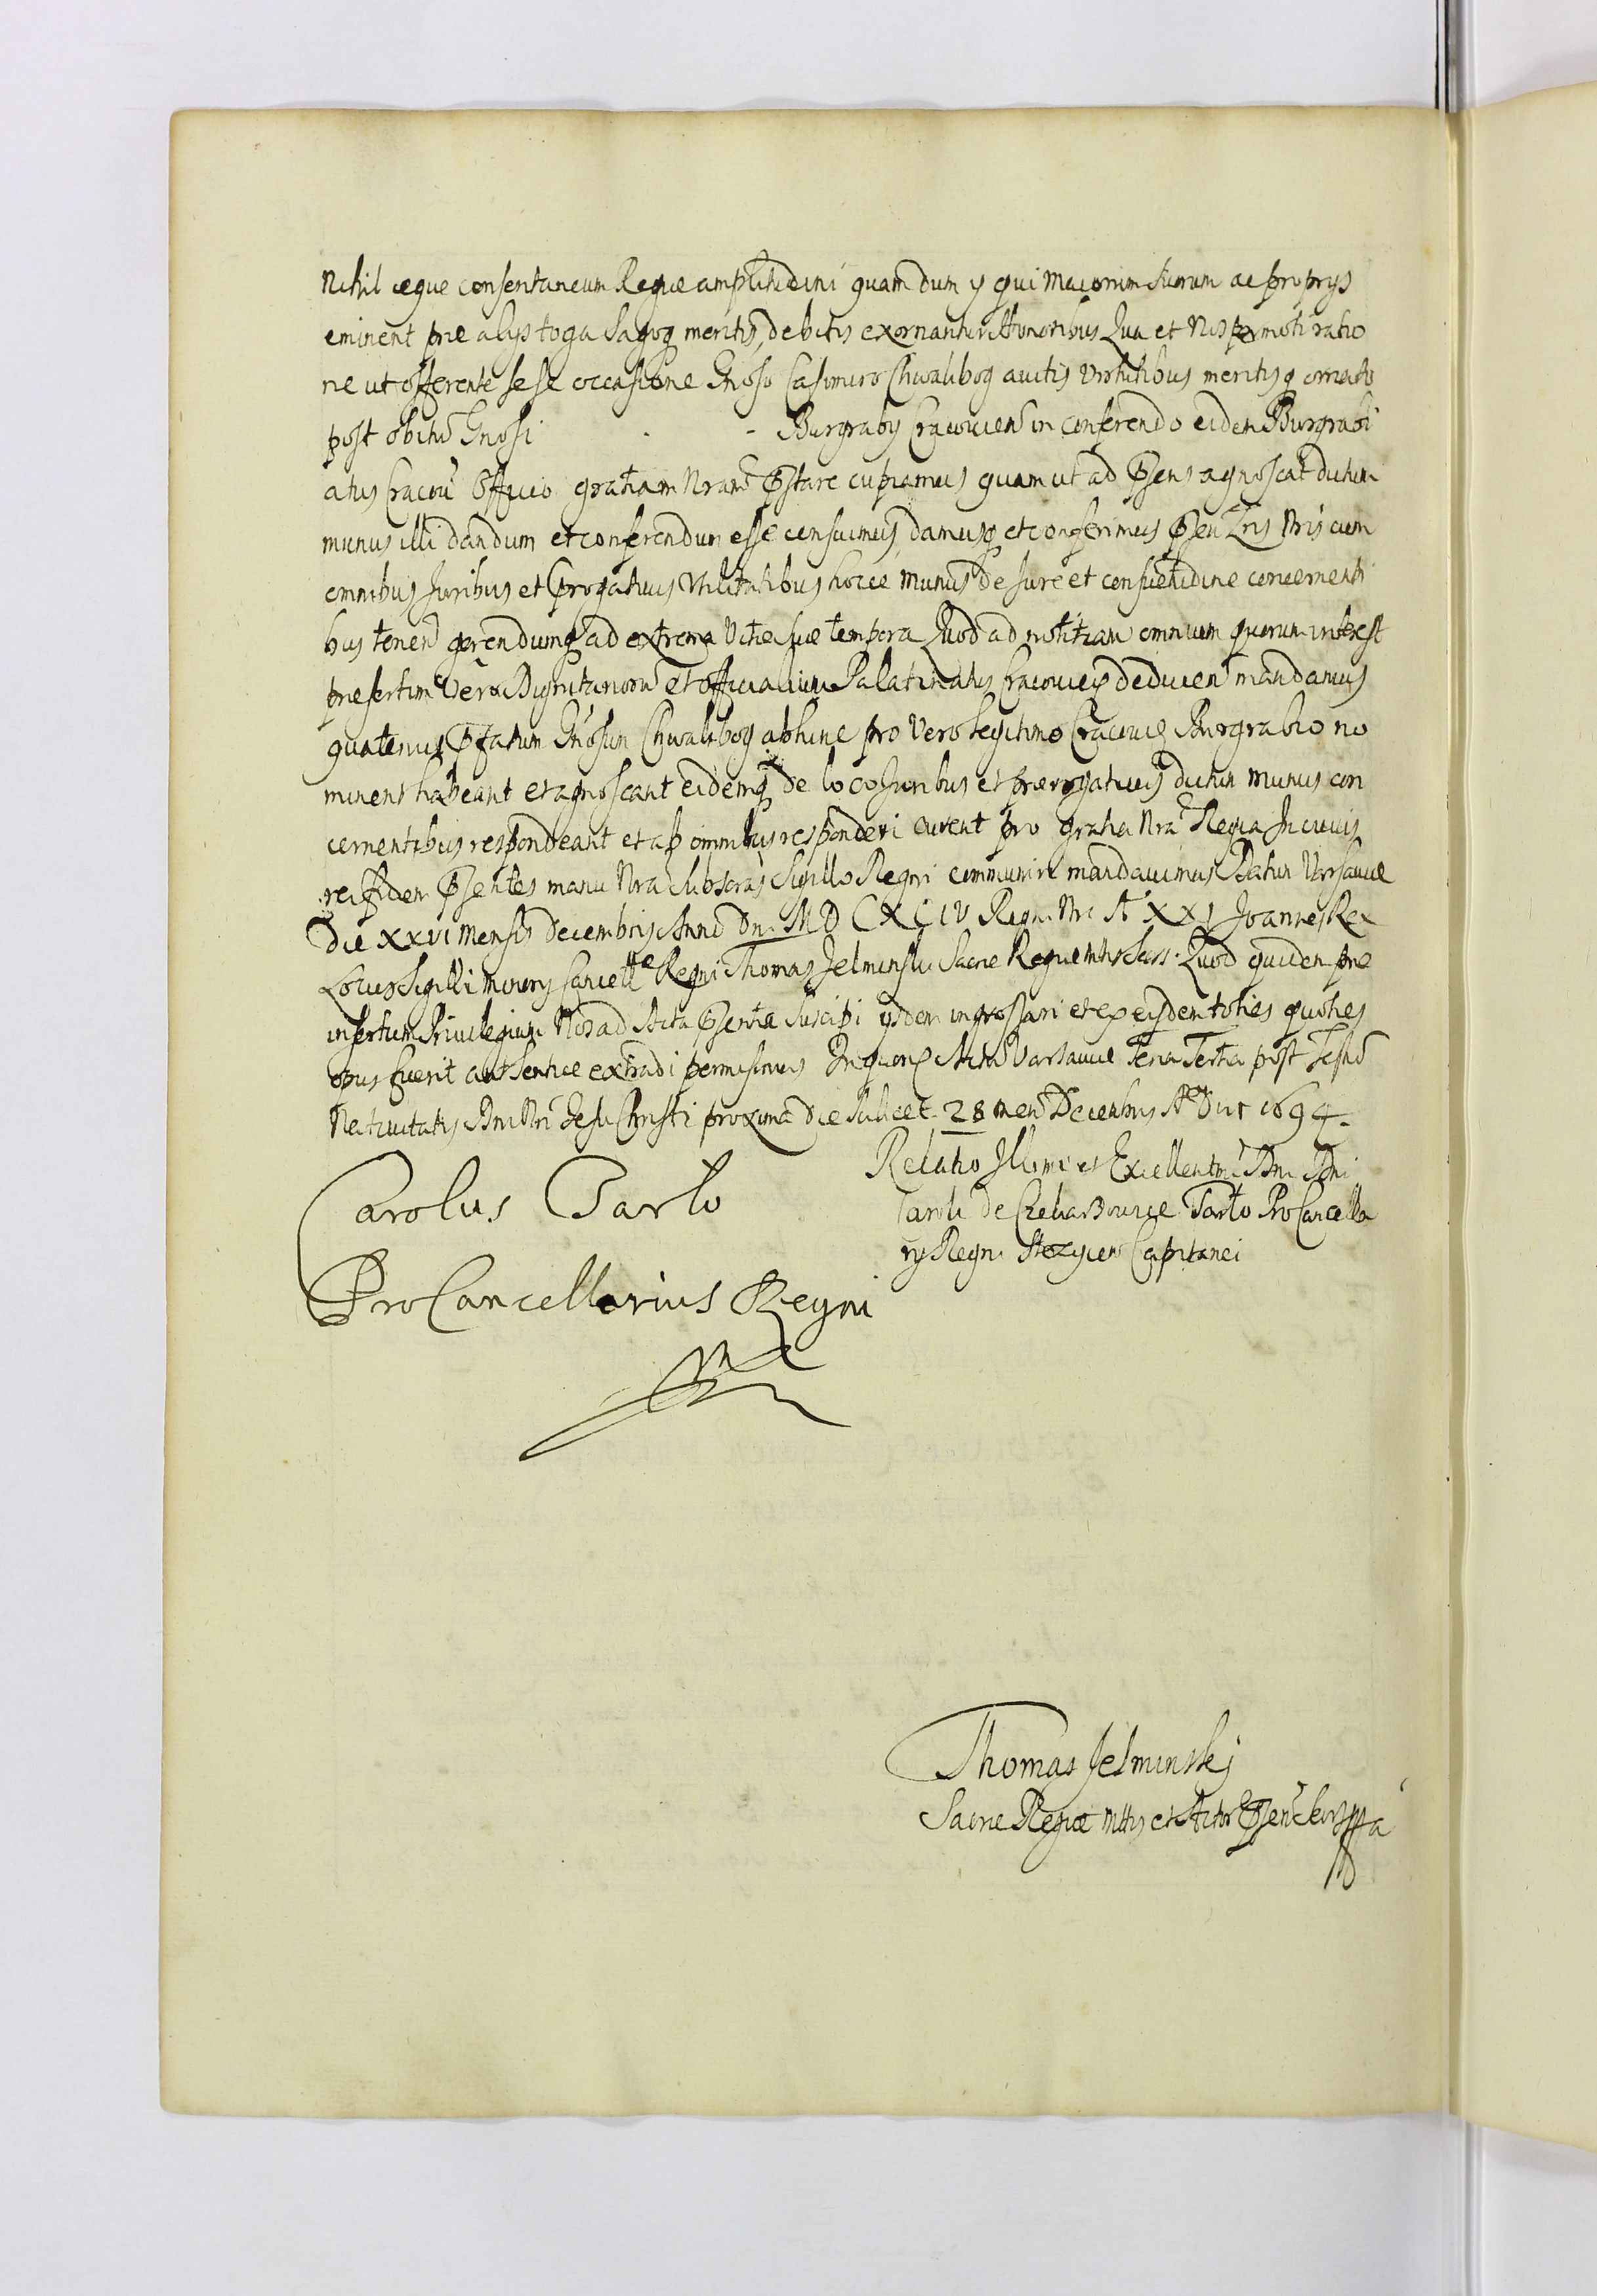 Nihil æque consentaneum Regiæ amplitudini quam dum ij qui Maiorum suorum ac proprijs
eminent præ alijs toga sagoq meritis, debitis exornantur Honoribus Qua et Nos permoti ratio
ne ut offerente sese occasione Gnoso Casimiro Chwalibog avitis virtutibus meritisq ornato
post obitu Gnosi - - Burgrabij Cracovien in conferendo eidem Burgrabi
atus Cracovi Officio gratiam Nram Pstare cupiamus quam ut ad Psens agnoscat dictum
munus illi dandum et conferendum esse censuimus, damusq et conferimus Psen Lris Nris cum
omnibus Juribus et Progativis Utilitatibus hocce munus de Jure et consuetudine concernenti
bus tenen gerendumq ad extrema Vitæ suæ tempora Quod ad notitiam omnium quorum interest
præsertim vero Dignitarioru et Officialium Palatinatus Cracoviens deducen mandamus
quatenus Pfatum Gnosum Chwalibog abhinc pro vero legitimo Cracovien Burgrabio no
minent habeant et agnoscant eidemq de loco Juribus et prærogativis dictum munus con
cernentibus respondeant et ab omnibus responderi curent pro gratia Nra Regia In cuius
rei fidem Psentes manu Nra subscras Sigillo Regni communiri mandavimus Datum Varsaviæ
Die XXVI Mensis Decembris Anno Dni M D C X C IV Regni Nri A XXI Joannes Rex
Locus Sigilli Minoris Cancellæ Regni Thomas Jelminski Sacræ Regiæ Mttis Secrs. Quod quidem præ
insertum Privilegium Nos ad Acta Psentia suscipi ijsdem ingrossari et ex eisdem toties quoties
opus fuerit authenticæ extradi permisimus Varsaviæ Feria Tertia post Festu
Nativitatis Dni Nri Jesu Christi proxima die scilicet 28 men Decembris A Dni 1694.
Relatio Illmi et Excellentmi Dni Dni
Caroli de Tarlo ProCancella
rij Regni Stezycen Capitanei
Carolus Tarlo
ProCancellarius Regni
Thomas Jelminskj
Sacræ Regiæ Mttis et Actor Psen